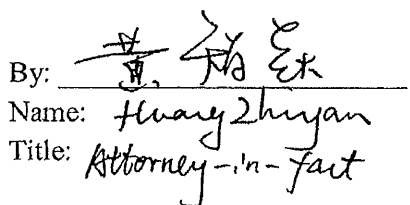 By: 黄
Name: Huang Zhuyan
Title: Attorney-in-fact